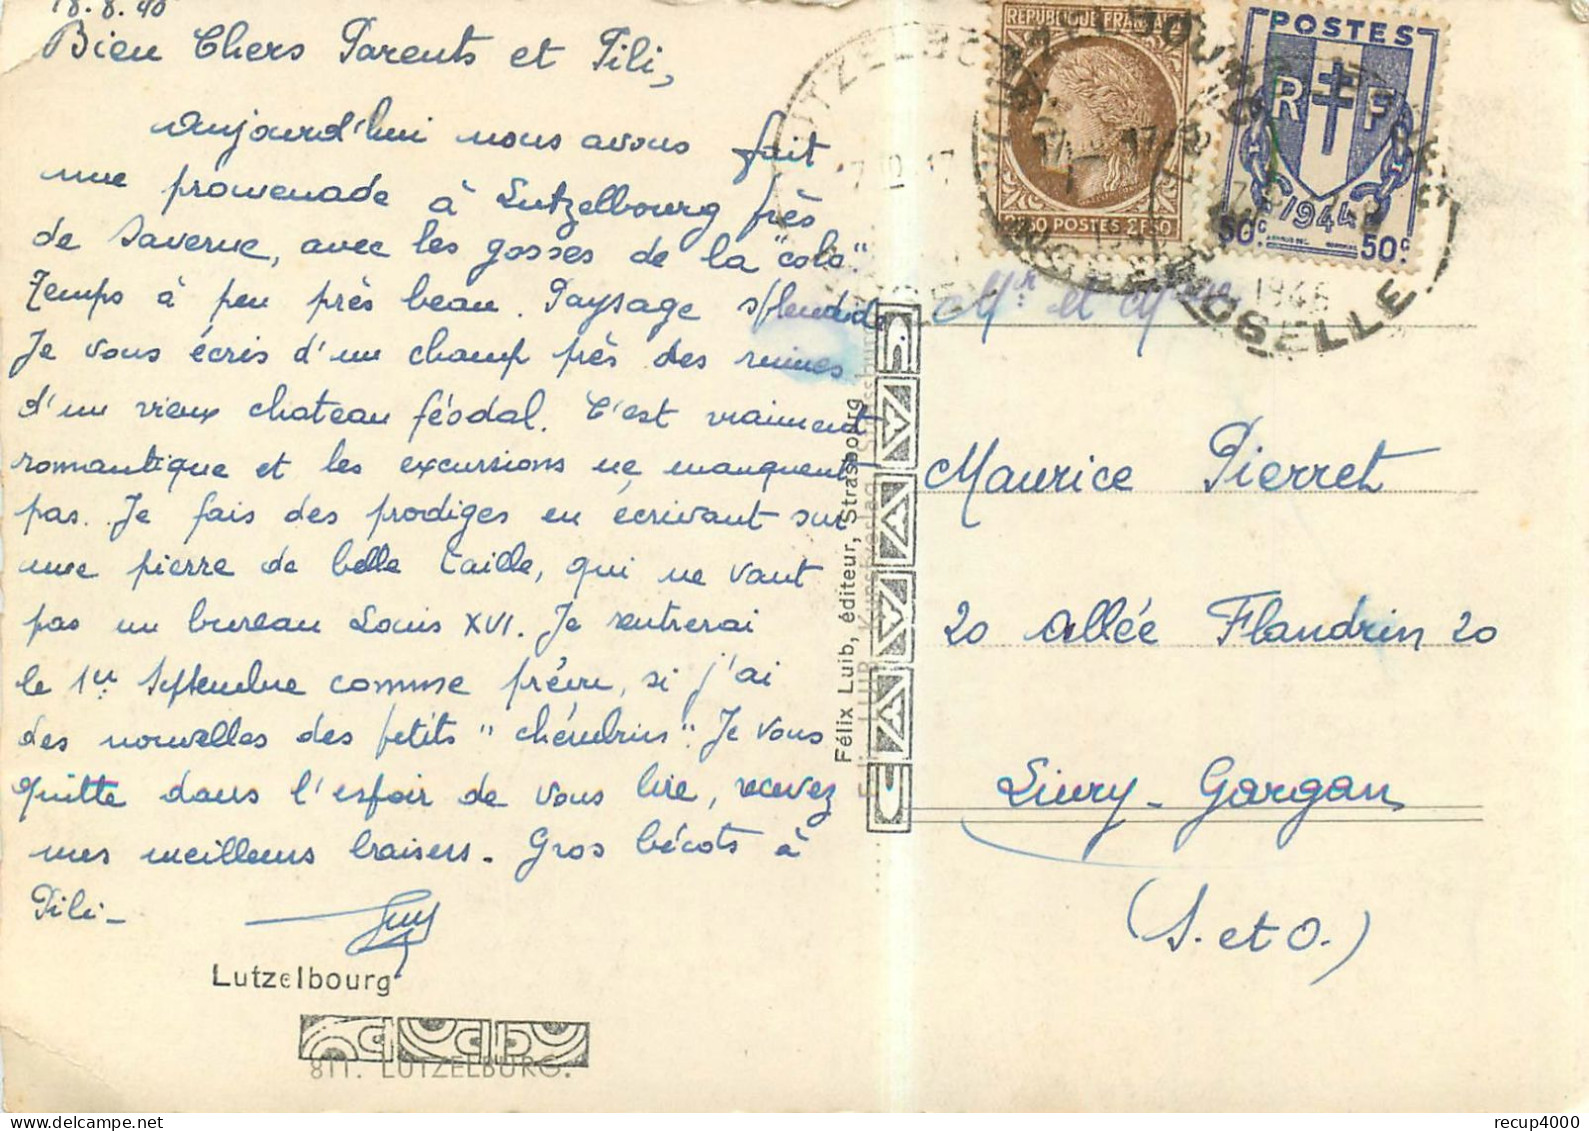 18.8.46
Bien Chers Parents et Pili,
Aujourd'hui nous avons fait
une promenade à Lutzelbourg près
de Saverne, avec les gosses de la "colo".
Temps à peu près beau. Paysage splendide
Je vous écris d'un champ près des ruines
d'un vieux chateau féodal. C'est vraiment
romantique et les excursions ne manquent
pas. Je fais des prodiges en écrivant sur
une pierre de belle taille, qui ne vaut
pas un bureau Louis XVI. Je rentrerai
le 1er Septembre comme prévu, si j'ai
des nouvelles des petits "chérubins". Je vous
quitte dans l'espoir de vous lire, recevez
mes meilleurs baisers. Gros bécots à
Pili -
Guy
Lutzelbourg
811. LUTZELBURG.
Félix Luib, éditeur, Strasbourg
REPUBLIQUE FRANÇAISE
2F50 POSTES 2F50
POSTES
RF
1944
50c 50c
LUTZELBOURG
MOSELLE
1946
Mr et Mme
Maurice Pierret
20 Allée Flandrin 20
Livry-Gargan
(S. et O.)
recup4000